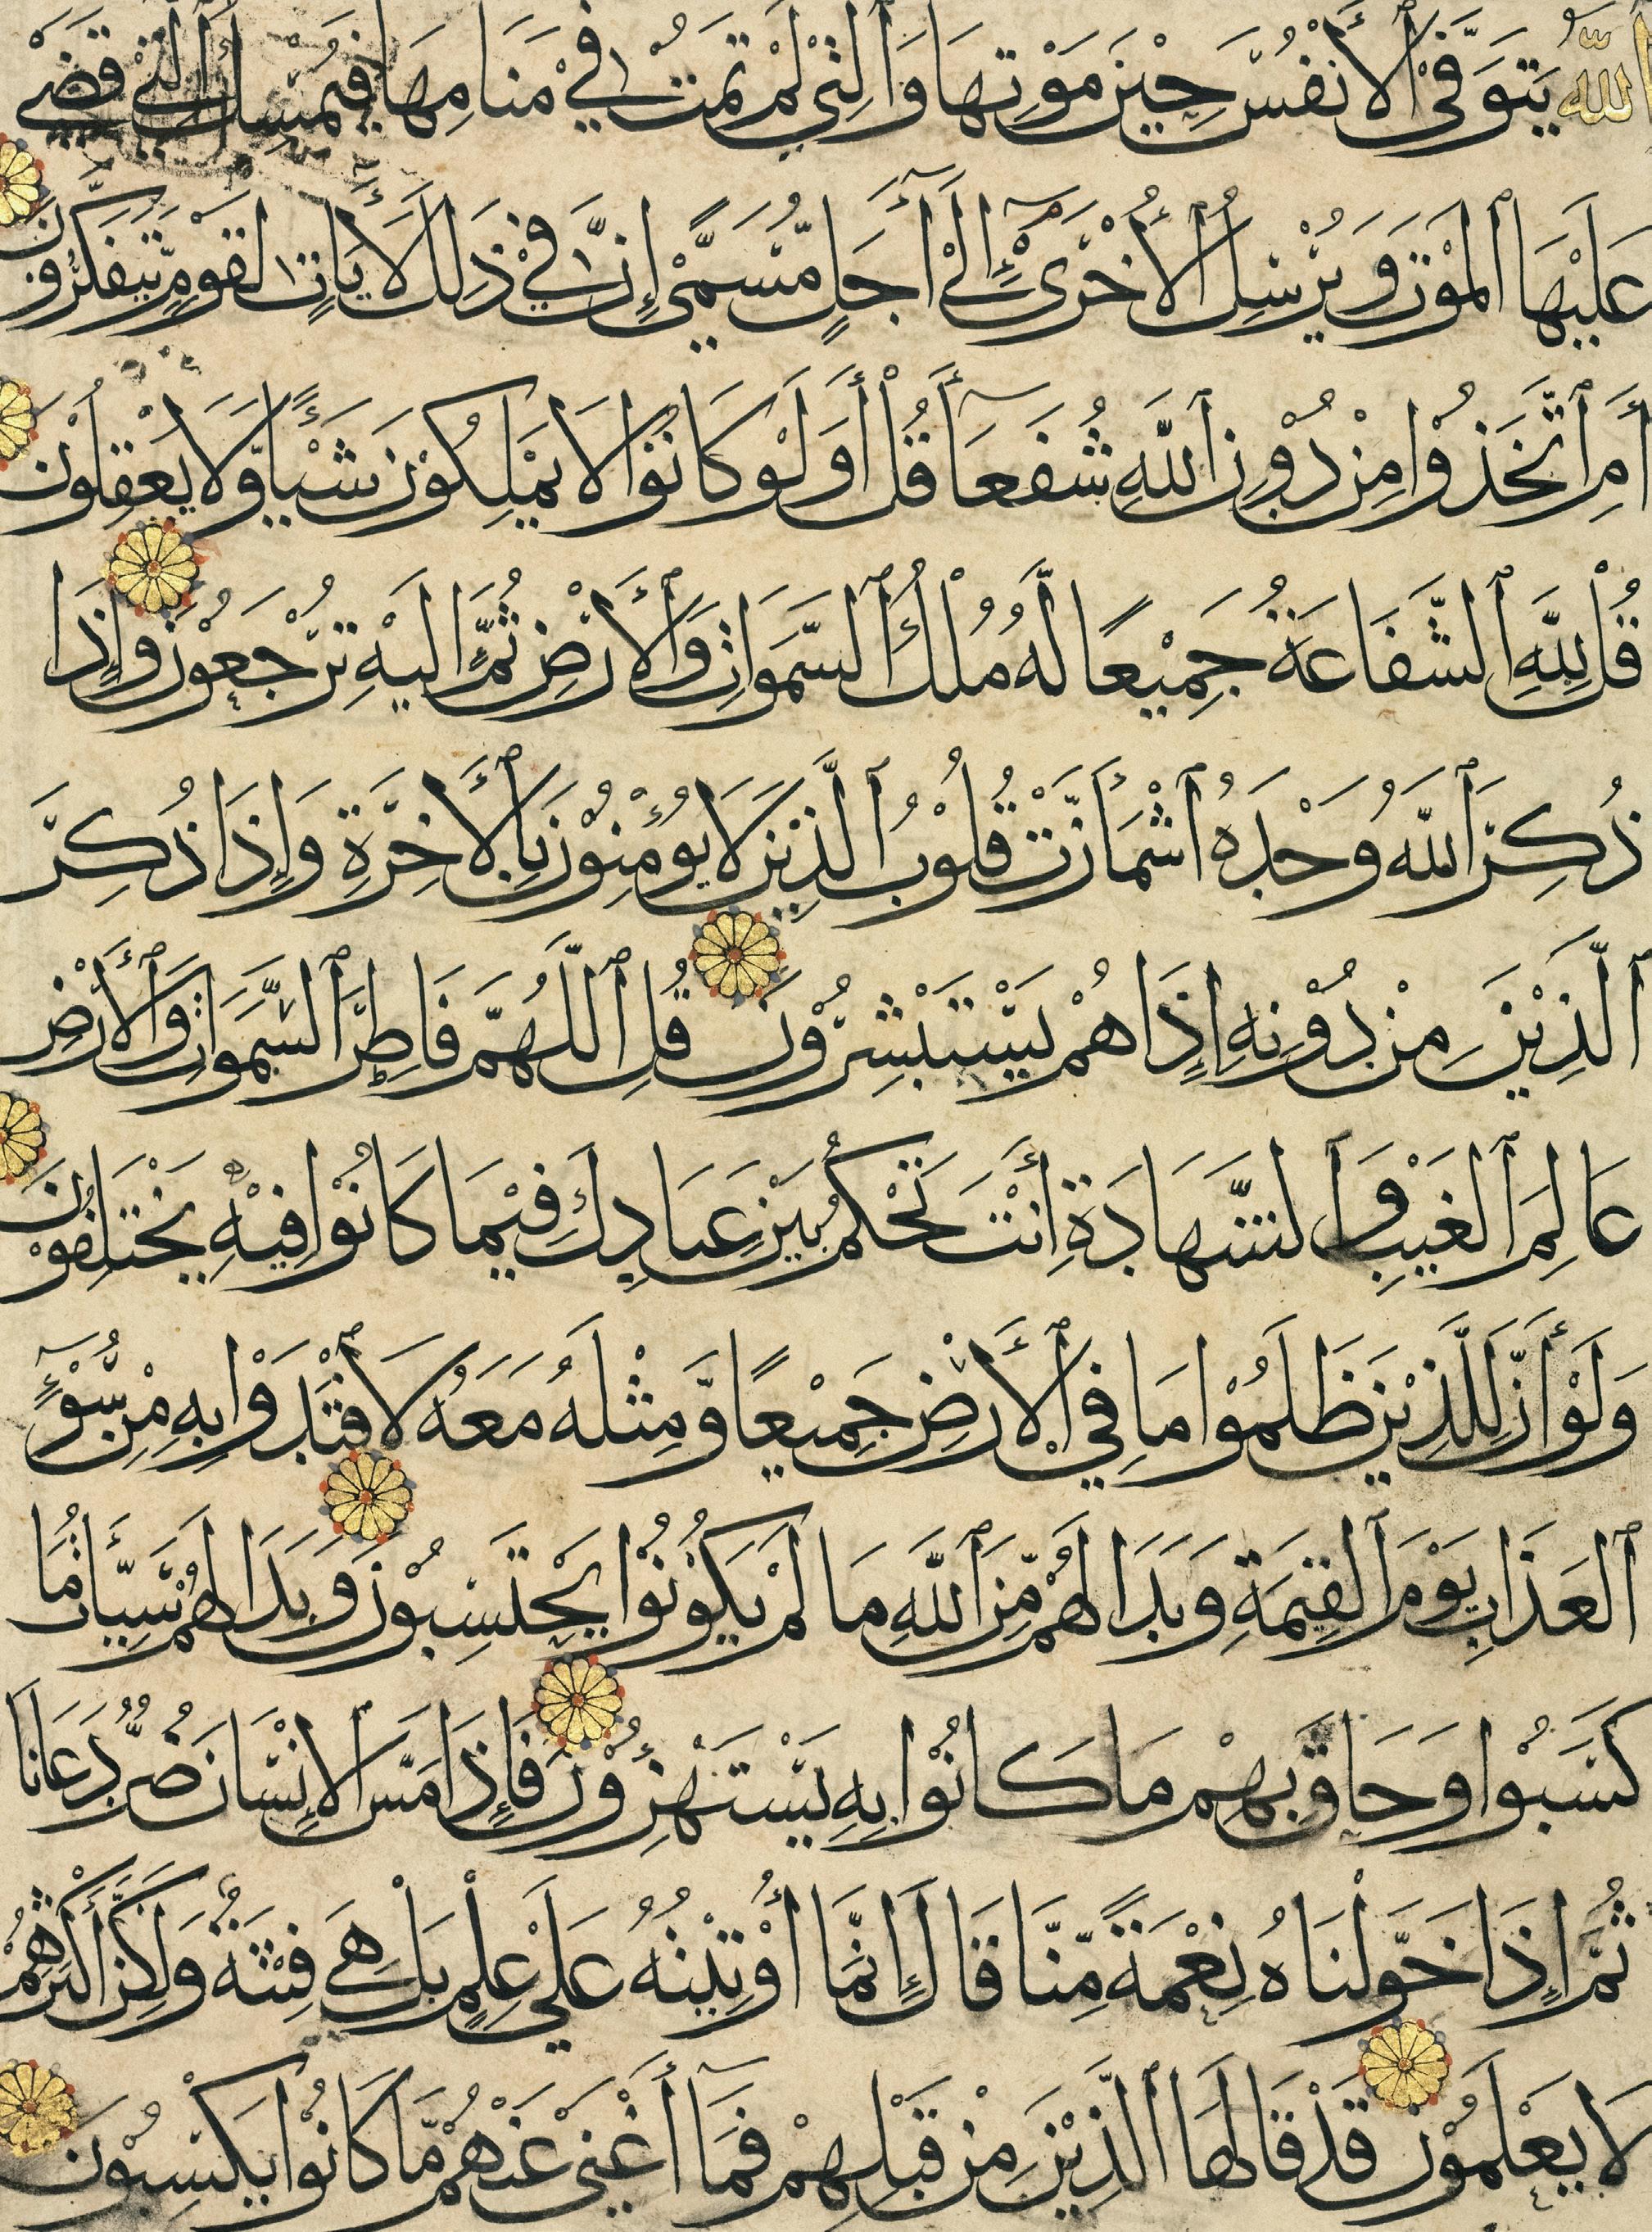 ٱللَّهُ يَتَوَفَّى ٱلْأَنْفُسَ حِيْنَ مَوْتِهَا وَٱلَّتِي لَمْ تَمُتْ فِيْ مَنَامِهَا فَيُمْسِكُ ٱلَّتِيْ قَضَىٰ
عَلَيْهَا ٱلْمَوْتَ وَيُرْسِلُ ٱلْأُخْرَىٰٓ إِلَىٰٓ أَجَلٍ مُّسَمًّى إِنَّ فِيْ ذَٰلِكَ لَأٓيَاتٍ لِقَوْمٍ يَّتَفَكَّرُوْنَ
أَمِ ٱتَّخَذُوْا مِنْ دُوْنِ ٱللَّهِ شُفَعَآءَ قُلْ أَوَلَوْ كَانُوْا لَا يَمْلِكُوْنَ شَيْـًٔا وَّلَا يَعْقِلُوْنَ
قُلْ لِلَّهِ ٱلشَّفَاعَةُ جَمِيْعًا لَهُ مُلْكُ ٱلسَّمَوَاتِ وَٱلْأَرْضِ ثُمَّ إِلَيْهِ تُرْجَعُوْنَ وَإِذَا
ذُكِرَ ٱللَّهُ وَحْدَهُ ٱشْمَأَزَّتْ قُلُوْبُ ٱلَّذِيْنَ لَا يُؤْمِنُوْنَ بِٱلْأَخِرَةِ وَإِذَا ذُكِرَ
ٱلَّذِيْنَ مِنْ دُوْنِهِ إِذَا هُمْ يَسْتَبْشِرُوْنَ قُلِ ٱللَّهُمَّ فَاطِرَ ٱلسَّمَوَاتِ وَٱلْأَرْضِ
عَالِمَ ٱلْغَيْبِ وَٱلشَّهَادَةِ أَنْتَ تَحْكُمُ بَيْنَ عِبَادِكَ فِيْمَا كَانُوْا فِيْهِ يَخْتَلِفُوْنَ
وَلَوْ أَنَّ لِلَّذِيْنَ ظَلَمُوْا مَا فِي ٱلْأَرْضِ جَمِيْعًا وَّمِثْلَهُ مَعَهُ لَافْتَدَوْا بِهِ مِنْ سُوْٓءِ
ٱلْعَذَابِ يَوْمَ ٱلْقِيَمَةِ وَبَدَا لَهُمْ مِّنَ ٱللَّهِ مَا لَمْ يَكُوْنُوْا يَحْتَسِبُوْنَ وَبَدَا لَهُمْ سَيِّـَٔاتُ مَا
كَسَبُوْا وَحَاقَ بِهِمْ مَا كَانُوْا بِهِ يَسْتَهْزِءُوْنَ فَإِذَا مَسَّ ٱلْإِنْسَانَ ضُرٌّ دَعَانَا
ثُمَّ إِذَا خَوَّلْنَاهُ نِعْمَةً مِّنَّا قَالَ إِنَّمَا أُوْتِيْتُهُ عَلَىٰ عِلْمٍ بَلْ هِيَ فِتْنَةٌ وَلَكِنَّ أَكْثَرَهُمْ
لَا يَعْلَمُوْنَ قَدْ قَالَهَا ٱلَّذِيْنَ مِنْ قَبْلِهِمْ فَمَآ أَغْنَىٰ عَنْهُمْ مَّا كَانُوْا يَكْسِبُوْنَ